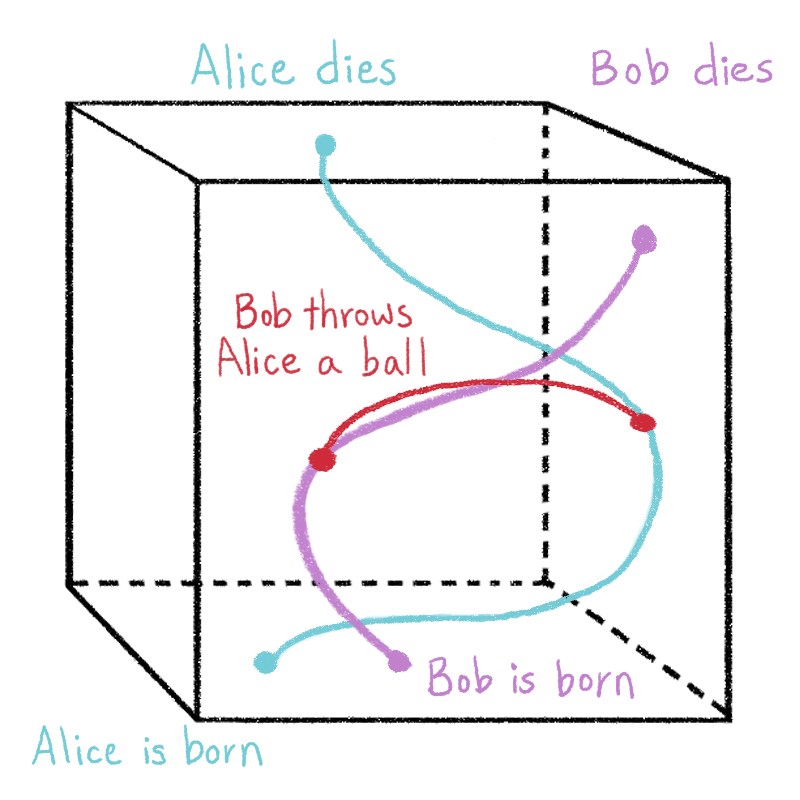 Alice dies
Bob dies
Bob throws
Alice a ball
Bob is born
Alice is born